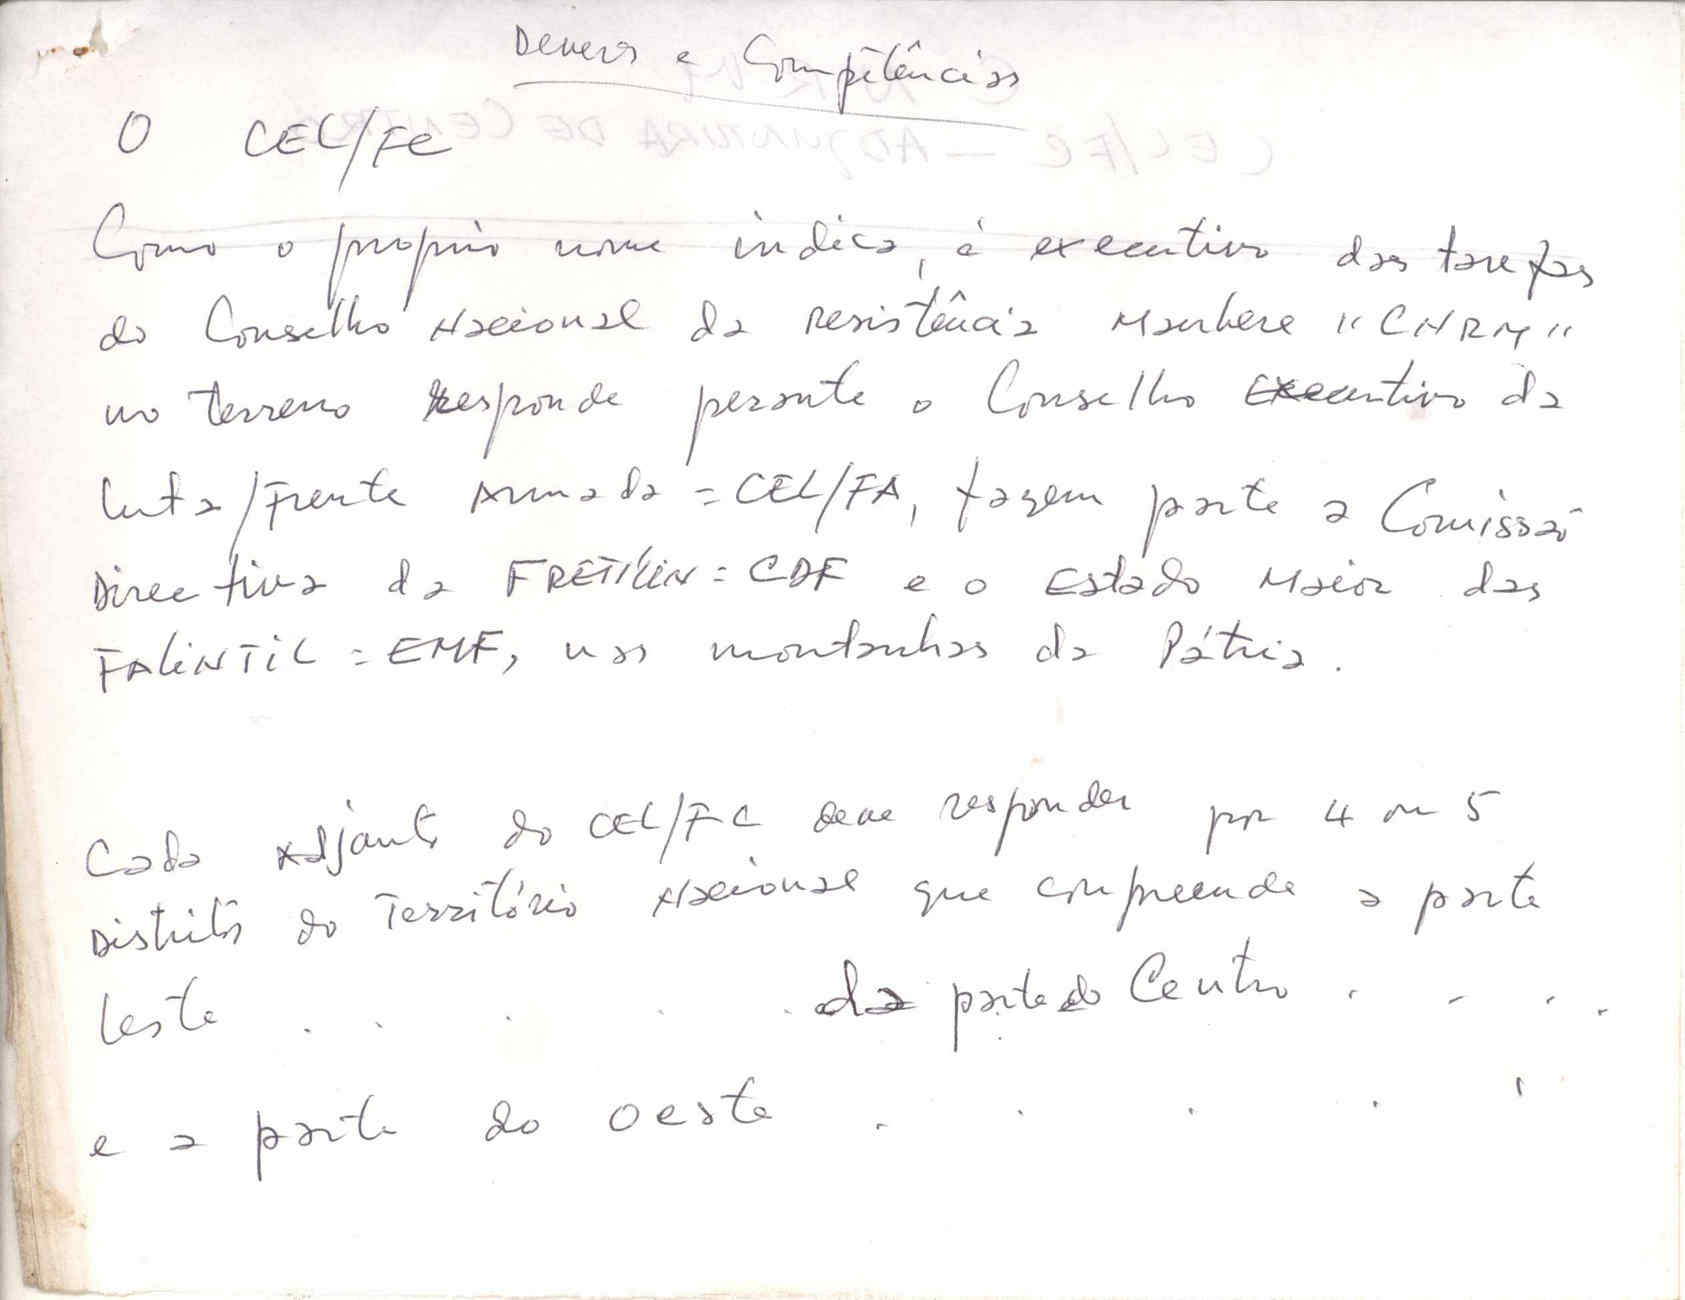 Deveres e Competências
O CEL/FC
Como o proprio nome indica, é executivo das tarefas
do Conselho Nacional da Resistência Maubere "CNRM"
no terreno Responde perante o Conselho Executivo da
luta/Frente Armada = CEL/FA, fazem parte a Comissão
Directiva da FRETILIN = CDF e o Estado Maior das
FALINTIL = EMF, nas montanhas da Pátria.
Cada Adjunto do CEL/FC deve responder por 4 ou 5
Distritos do Território Nacional que compreende a parte
leste . . . . . da parte do Centro . . . .
e a parte do oeste . . . . .